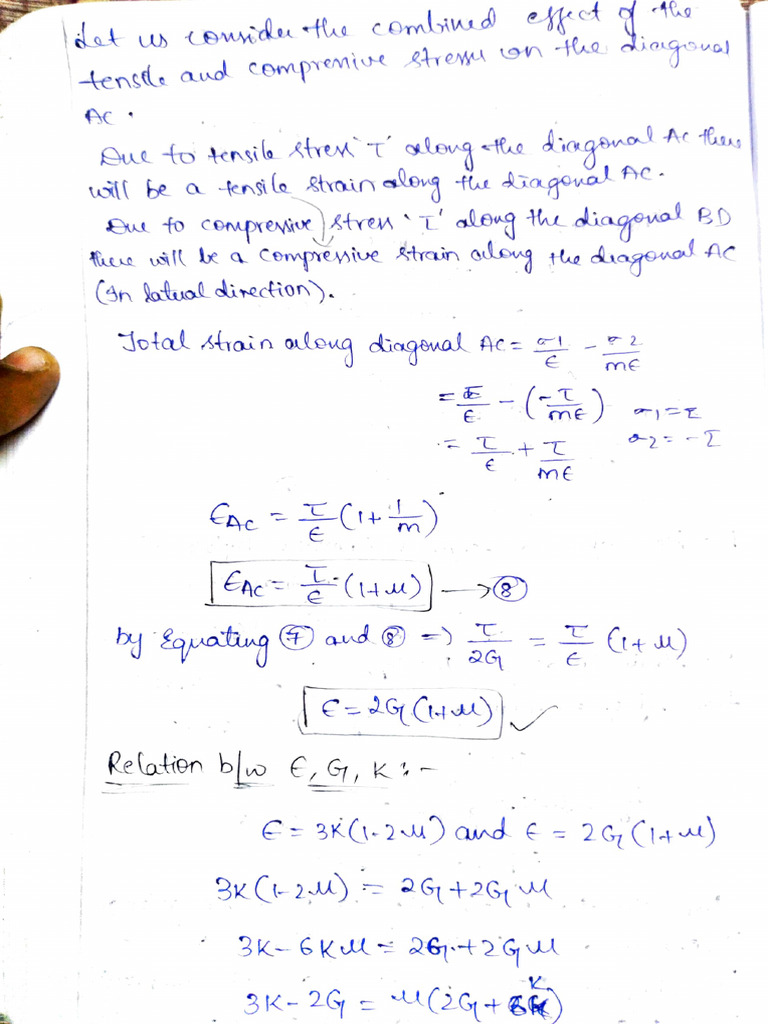 Let us consider the combined effect of the
tensile and compressive stress on the diagonal
AC.
Due to tensile stress 'τ' along the diagonal AC there
will be a tensile strain along the diagonal AC.
Due to compressive stress 'τ' along the diagonal BD
there will be a compressive strain along the diagonal AC
(In lateral direction).
Total strain along diagonal AC = σ1/E - σ2/mE
= τ/E - (-τ/mE) σ1 = τ
= τ/E + τ/mE σ2 = -τ
ϵAC = τ/E (1+1/m)
ϵAC = τ/E · (1+μ) → ⑧
by Equating ⑦ and ⑧ ⇒ τ/2G = τ/E (1+μ)
E = 2G(1+μ) ✓
Relation b/w E, G, K :-
E = 3K(1-2μ) and E = 2G(1+μ)
3K(1-2μ) = 2G+2Gμ
3K-6Kμ = 2G+2Gμ
3K-2G = μ(2G+6K)